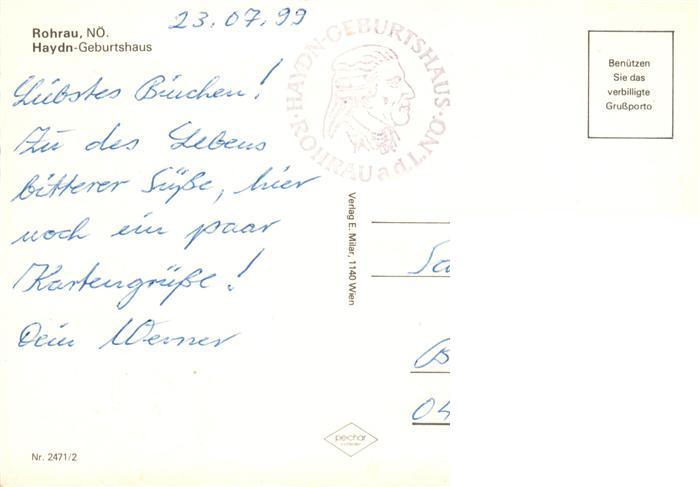 23.07.99
Rohrau, NÖ.
Haydn-Geburtshaus
HAYDN-GEBURTSHAUS·
·ROHRAU a.d.L.NÖ.
Benützen
Sie das
verbilligte
Grußporto
Liebstes Binchen!
Zu des Lebens
bitterer Süße, hier
noch ein paar
Kartengrüße!
Dein Werner
Verlag E. Millar, 1140 Wien
Sa
B
04
pechar
Nr. 2471/2